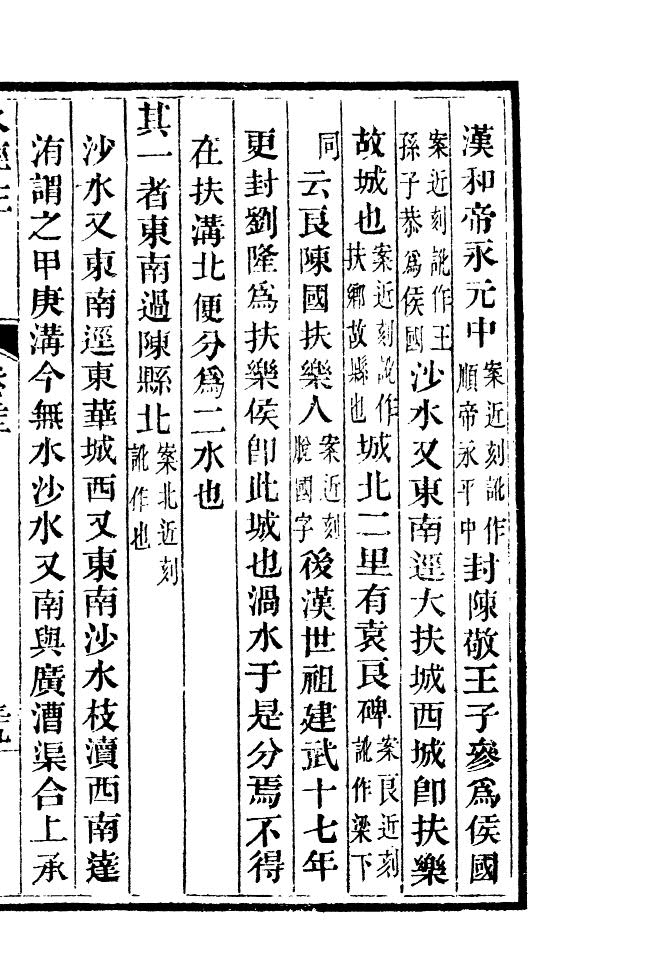 漢和帝永元中案近刻訛作順帝永平中封陳敬王子參爲侯國
案近刻訛作王孫子恭爲侯國沙水又東南逕大扶城西城卽扶樂
故城也案近刻訛作扶鄉故縣也城北二里有袁良碑案良近刻訛作梁下
同云良陳國扶樂人案近刻脫國字後漢世祖建武十七年
更封劉隆爲扶樂侯卽此城也渦水于是分焉不得
在扶溝北便分爲二水也
其一者東南過陳縣北案北近刻訛作也
沙水又東南逕東華城西又東南沙水枝瀆西南達
洧謂之甲庚溝今無水沙水又南與廣漕渠合上承
水經注